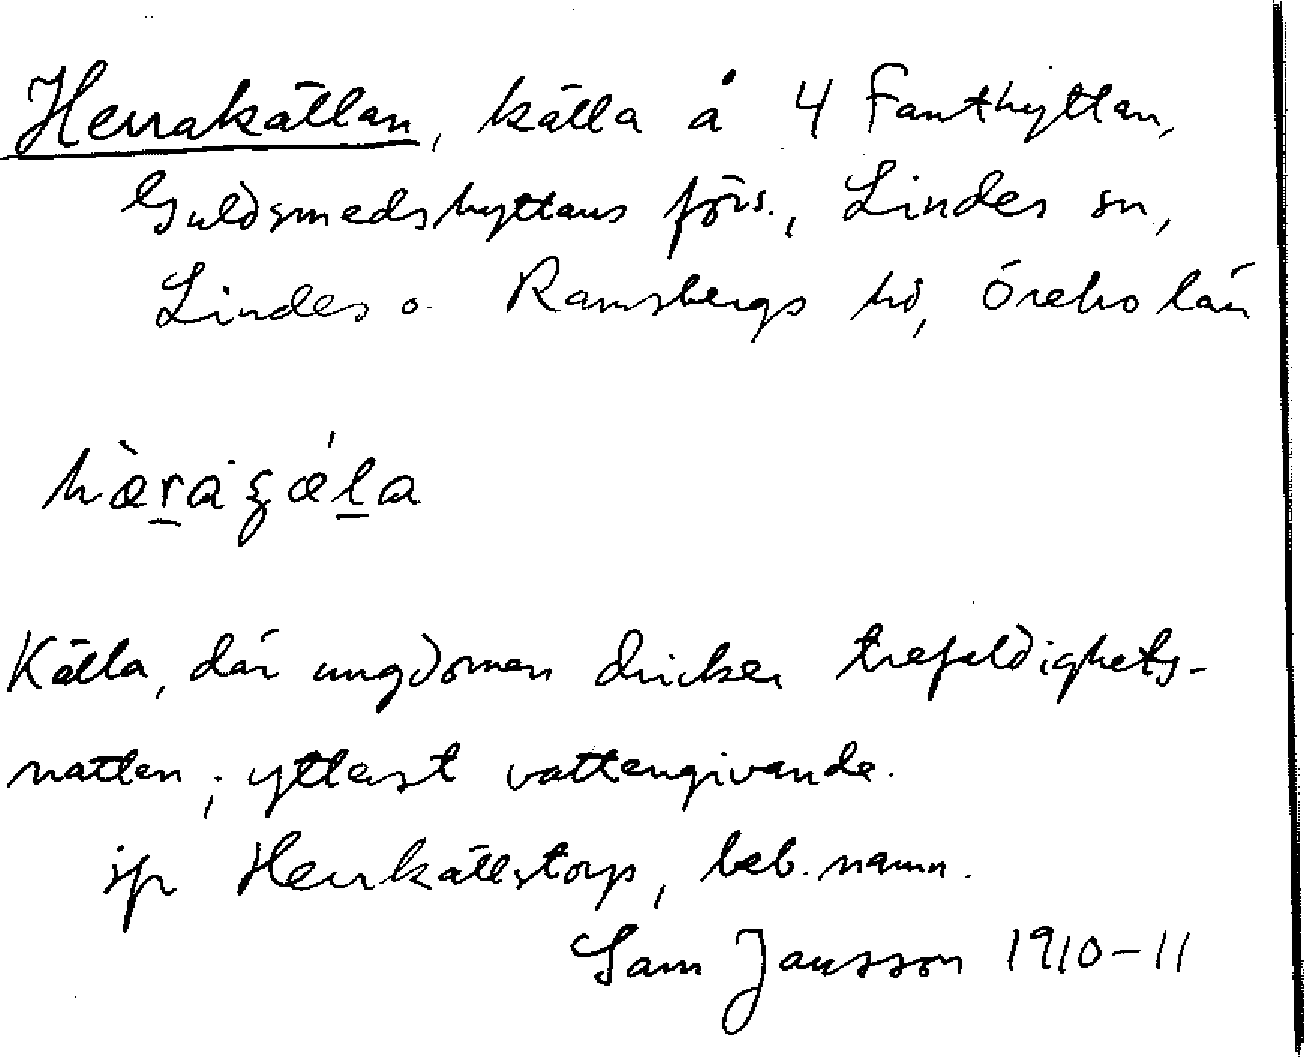 Herrakällan, källa å 4 Fanthyttan,
Guldsmedshyttans förs., Lindes sn,
Lindes o. Ramsbergs hd, Örebro län
hæ̀ra ʒæ̍la
Källa, där ungdomen dricker trefaldighets-
natten; ytterst vattengivande.
jfr Herrkällstorp, beb.namn.
Sam Jansson 1910-11